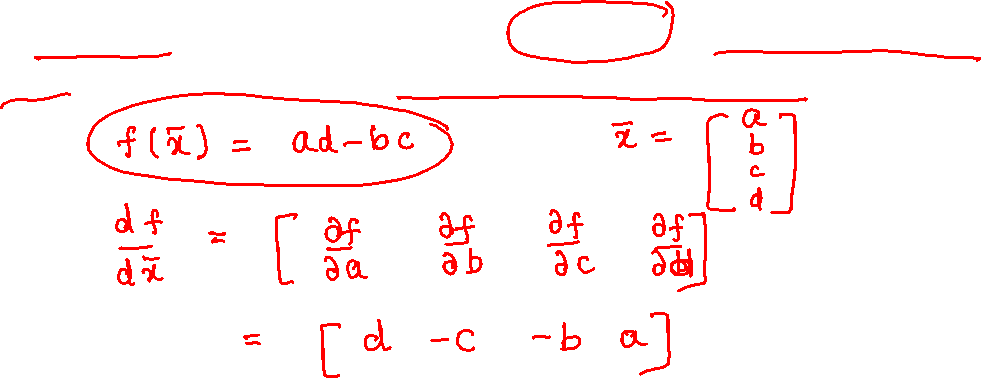 f(x̄) = ad-bc    x̄ = [a b c d]
df/dx̄ = [∂f/∂a ∂f/∂b ∂f/∂c ∂f/∂d]
= [d -c -b a]